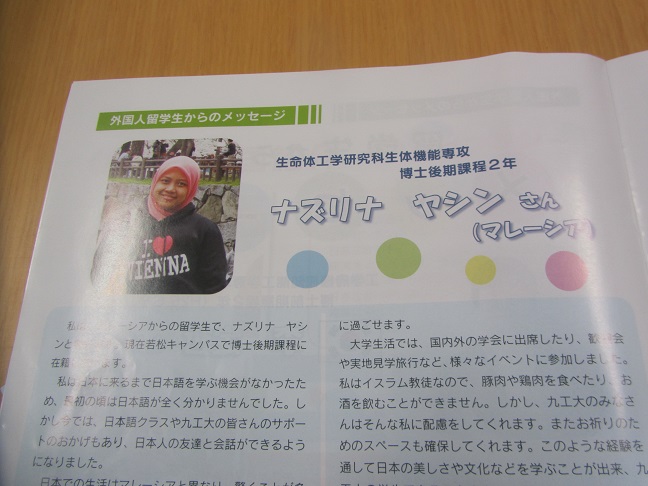 外国人留学生からのメッセージ
生命体工学研究科生体機能専攻
博士後期課程２年
ナズリナ ヤシン さん
(マレーシア)
I
VIENNA
私 ーシアからの留学生で、ナズリナ ヤシ
ンと 現在若松キャンパスで博士後期課程に
在 ます。
私は日本に来るまで日本語を学ぶ機会がなかったた
め、最初の頃は日本語が全く分かりませんでした。し
かし今では、日本語クラスや九工大の皆さんのサポー
トのおかげもあり、日本人の友達と会話ができるよう
になりました。
日本での生活はマレーシアと異なり、驚くことが多
に過ごせます。
大学生活では、国内外の学会に出席したり、歓 会
や実地見学旅行など、様々なイベントに参加しました。
私はイスラム教徒なので、豚肉や鶏肉を食べたり、お
酒を飲むことができません。しかし、九工大のみなさ
んはそんな私に配慮をしてくれます。またお祈りのた
めのスペースも確保してくれます。このような経験を
通して日本の美しさや文化などを学ぶことが出来、九